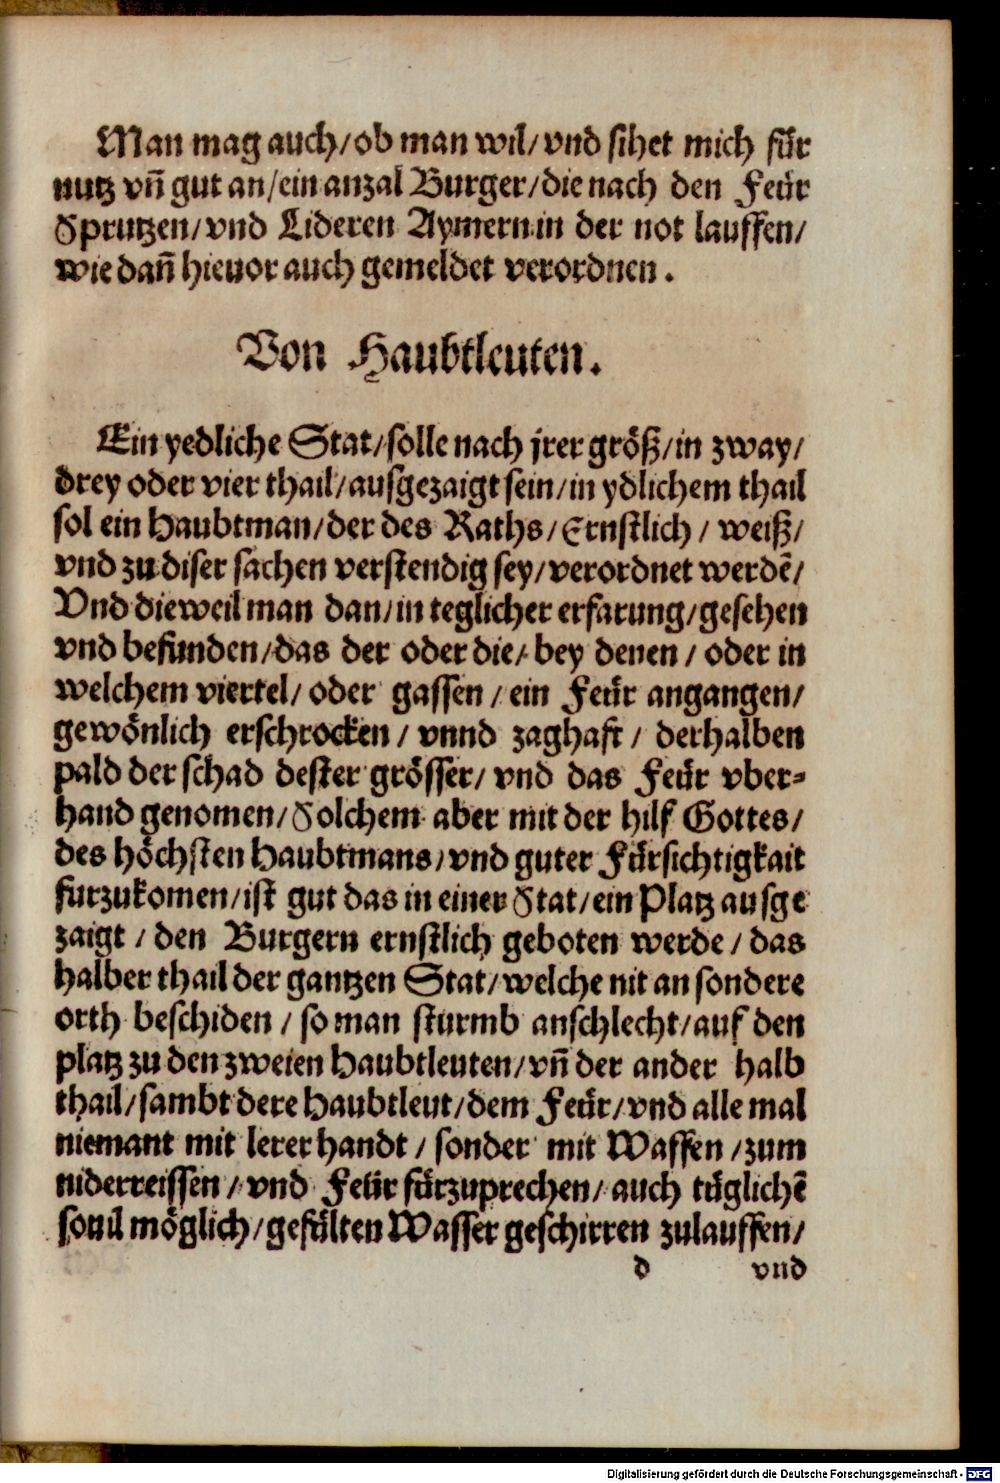 Man mag auch/ob man wil/vnd sihet mich für
nutz vñ gut an/ein anzal Burger/die nach den Feür
Sprutzen/vnd Lideren Aymern in der not lauffen/
wie dañ hieuor auch gemeldet verordnen.
Von Haubtleuten.
Ein yedliche Stat/solle nach jrer größ/in zway/
drey oder vier thail/ausgezaigt sein/in ydlichem thail
sol ein Haubtman/der des Raths/Ernstlich/ weiß/
vnd zu diser sachen verstendig sey/verordnet werdē/
Vnd dieweil man dan/in teglicher erfarung/gesehen
vnd befunden/das der oder die/ bey denen/ oder in
welchem viertel/ oder gassen/ ein Feür angangen/
gewönlich erschrocken/ vnnd zaghaft/ derhalben
pald der schad dester grösser/ vnd das Feür vber-
hand genomen/Solchem aber mit der hilf Gottes/
des höchsten Haubtmans/vnd guter Fürsichtigkait
furzukomen/ist gut das in einer Stat/ein Platz ausge
zaigt/ den Burgern ernstlich geboten werde/ das
halber thail der gantzen Stat/welche nit an sondere
orth beschiden/ so man sturmb anschlecht/auf den
platz zu den zweien Haubtleuten/vñ der ander halb
thail/sambt dere Haubtleut/dem Feür/vnd alle mal
niemant mit lerer handt/ sonder mit Waffen/zum
niderreissen/ vnd Feür fürzuprechen/ auch tüglichē
souil möglich/gefülten Wasser geschirren zulauffen/
d vnd
Digitalisierung gefördert durch die Deutsche Forschungsgemeinschaft - DFG